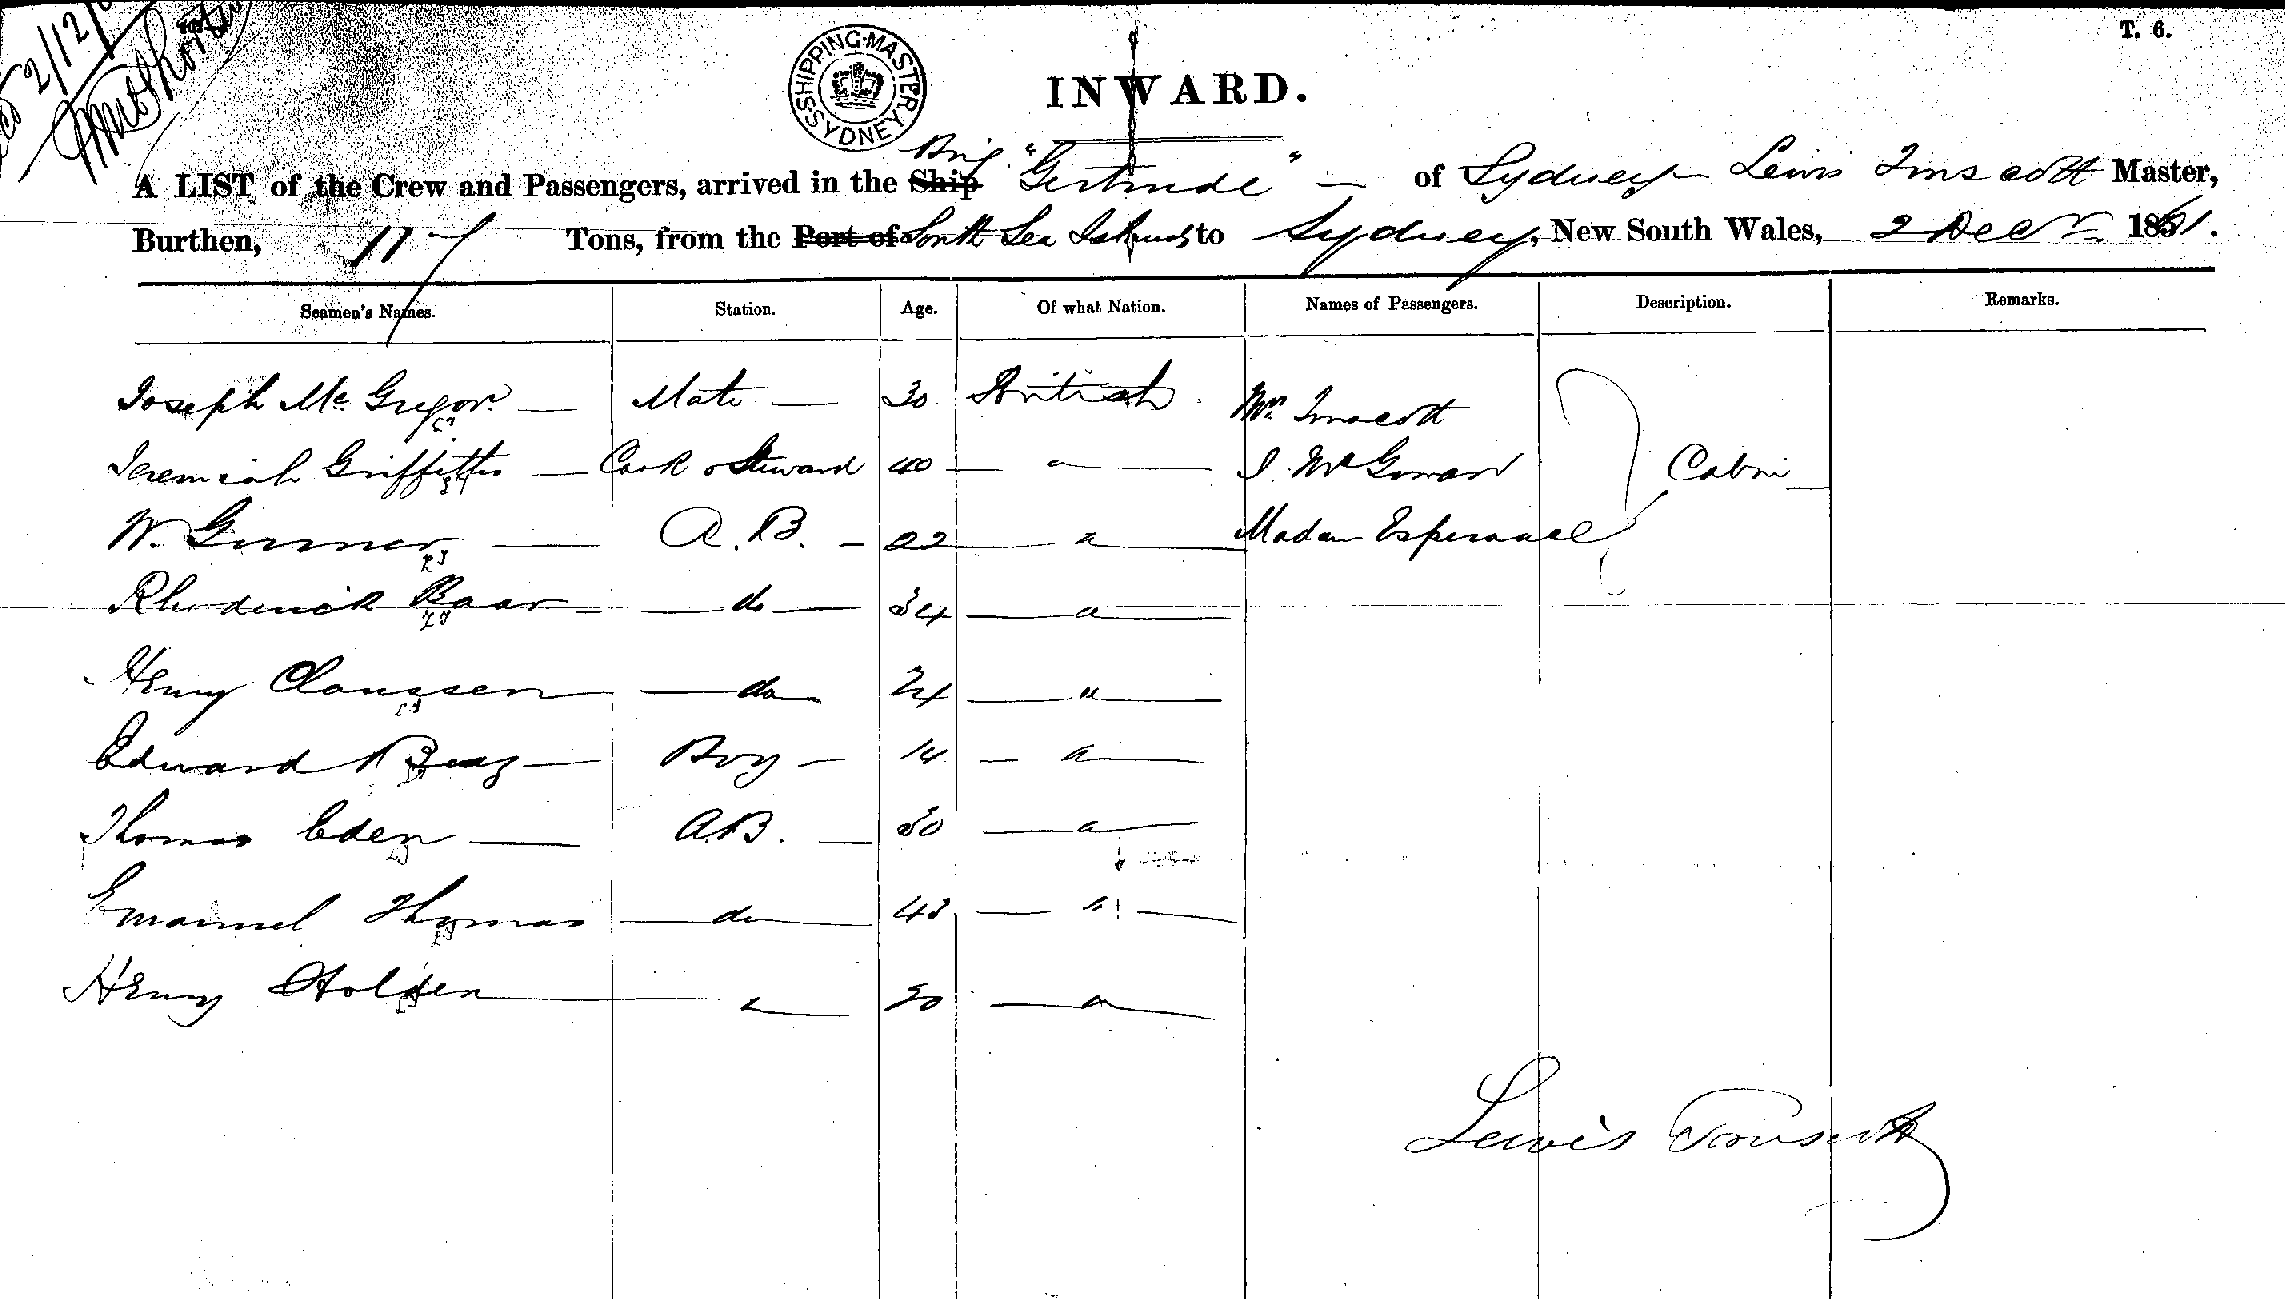 T. 6.
2/12/
SHIPPING MASTER SYDNEY
INWARD.
Brig
A LIST of the Crew and Passengers, arrived in the Ship "Gertrude" — of Sydney Lewis Truscott Master,
Burthen, 117 Tons, from the Port of South Sea Islands to Sydney, New South Wales, 2 Decr 1861.
Seamen's Names. Station. Age. Of what Nation. Names of Passengers. Description. Remarks.
Joseph McGregor — Mate — 30 British Mrs Truscott
Jeremiah Griffiths — Cook & Steward 40 — " — J. McGowan Cabin
W. — A.B. — 22 — " — Madam Esperance
Rhoderick Baar — do — 34 — " —
Henry Claussen — do 24 — " —
Edward — Boy — 14 — " —
Thomas Eden — A.B. — 30 — " —
Emanuel Thomas — do — 43 — " —
Henry Holden — " — 20 — " —
Lewis Truscott